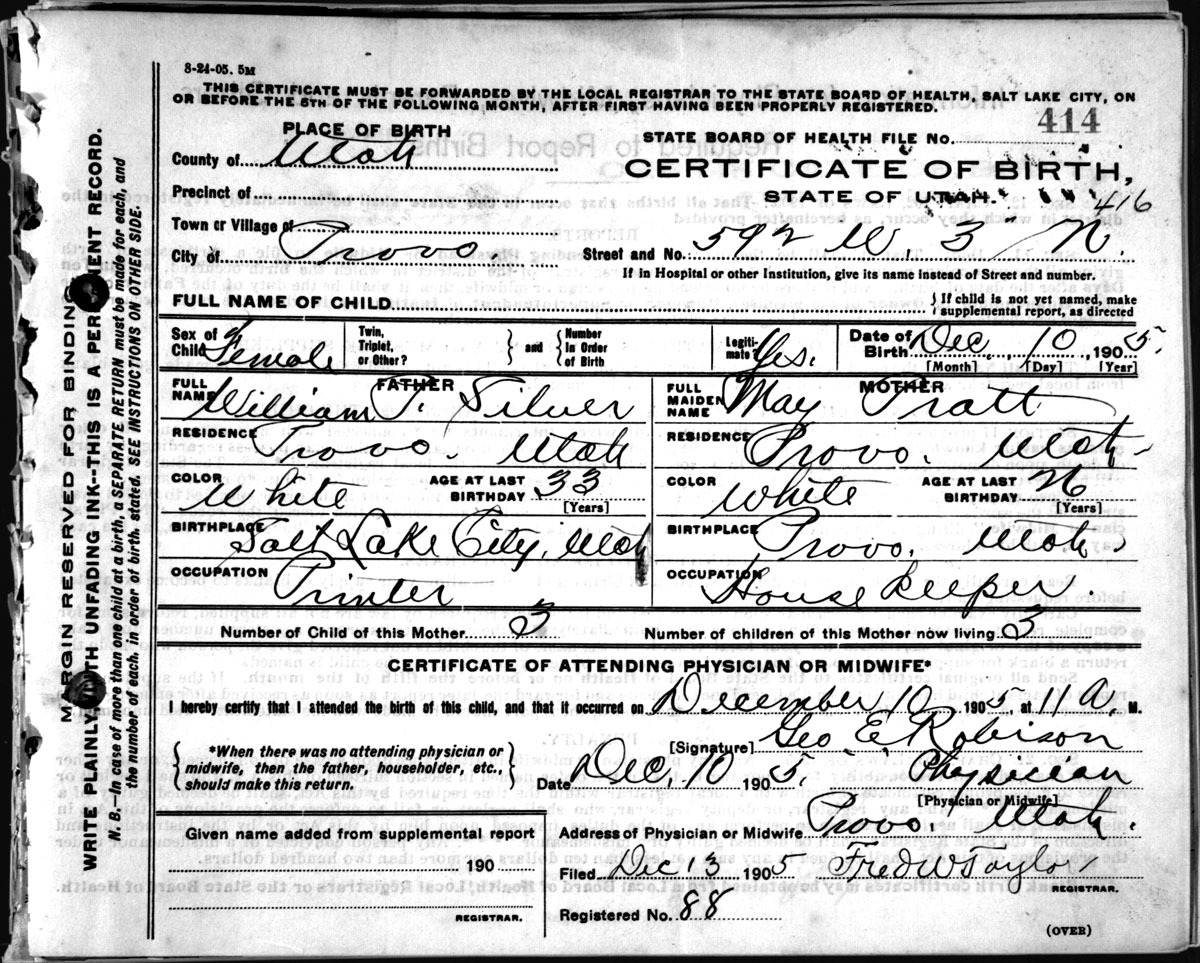 8-24-05. 5M
THIS CERTIFICATE MUST BE FORWARDED BY THE LOCAL REGISTRAR TO THE STATE BOARD OF HEALTH, SALT LAKE CITY, ON
OR BEFORE THE 5TH OF THE FOLLOWING MONTH, AFTER FIRST HAVING BEEN PROPERLY REGISTERED.
PLACE OF BIRTH
STATE BOARD OF HEALTH FILE No. 414
County of Utah
CERTIFICATE OF BIRTH,
Precinct of
STATE OF UTAH. 416
Town or Village of
City of Provo. Street and No. 592 W. 3 N.
If in Hospital or other Institution, give its name instead of Street and number.
FULL NAME OF CHILD } If child is not yet named, make supplemental report, as directed
Sex of Child Female Twin, Triplet, or Other? } and { Number In Order of Birth Legitimate? Yes. Date of Birth Dec. 10, 1905.
[Month] [Day] [Year]
FATHER MOTHER
FULL NAME William P. Silver FULL MAIDEN NAME May Pratt
RESIDENCE Provo. Utah RESIDENCE Provo. Utah
COLOR White AGE AT LAST BIRTHDAY 33 [Years] COLOR White AGE AT LAST BIRTHDAY 26 [Years]
BIRTHPLACE Salt Lake City, Utah BIRTHPLACE Provo. Utah.
OCCUPATION Printer OCCUPATION House Keeper.
Number of Child of this Mother 3 Number of children of this Mother now living 3
CERTIFICATE OF ATTENDING PHYSICIAN OR MIDWIFE*
I hereby certify that I attended the birth of this child, and that it occurred on December 10, 1905, at 11 A. M.
{ *When there was no attending physician or midwife, then the father, householder, etc., should make this return. }
[Signature] Geo E. Robison
Date Dec, 10 1905. Physician
[Physician or Midwife]
Given name added from supplemental report
Address of Physician or Midwife Provo. Utah.
190
Filed Dec 13 1905 Fred W Taylor
REGISTRAR.
REGISTRAR.
Registered No. 88
(OVER)
MARGIN RESERVED FOR BINDING
WRITE PLAINLY WITH UNFADING INK--THIS IS A PERMANENT RECORD.
N. B.--In case of more than one child at a birth, a SEPARATE RETURN must be made for each, and
the number of each, in order of birth, stated. SEE INSTRUCTIONS ON OTHER SIDE.